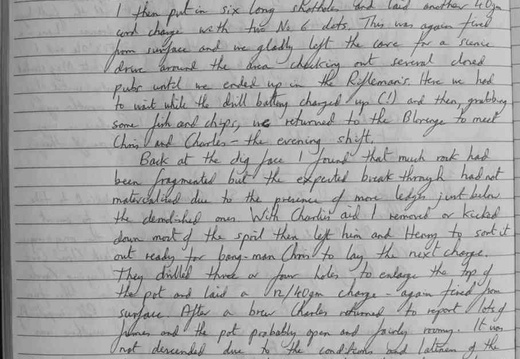 I then put in six long shotholes and laid another 40gm
cord charge with two No 6 dets. This was again fired
from surface and we gladly left the cave for a scenic
drive around the area checking out several closed
pubs until we ended up in the Rifleman's. Here we had
to wait while the drill battery charged up (!) and then, grabbing
some fish and chips, we returned to the Blorenge to meet
Chris and Charles - the evening shift.
Back at the dig face I found that much rock had
been fragmented but the expected break through had not
materialised due to the presence of more ledges just below
the demolished ones. With Charles aid I removed or kicked
down most of the spoil then left him and Henry to sort it
out ready for bang-man Chris to lay the next charge.
They drilled three or four holes to enlarge the top of
the pot and laid a 12/40gm charge - again fired from
surface. After a brew Charles returned to report lots of
fumes and the pot probably open and fairly roomy. It was
not descended due to the conditions and lateness of the